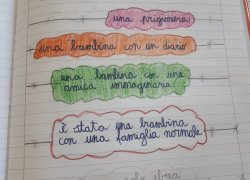 una prigioniera
una bambina con un diario
una bambina con una
amica immaginaria
è stata una bambina
con una famiglia normale
ebrea